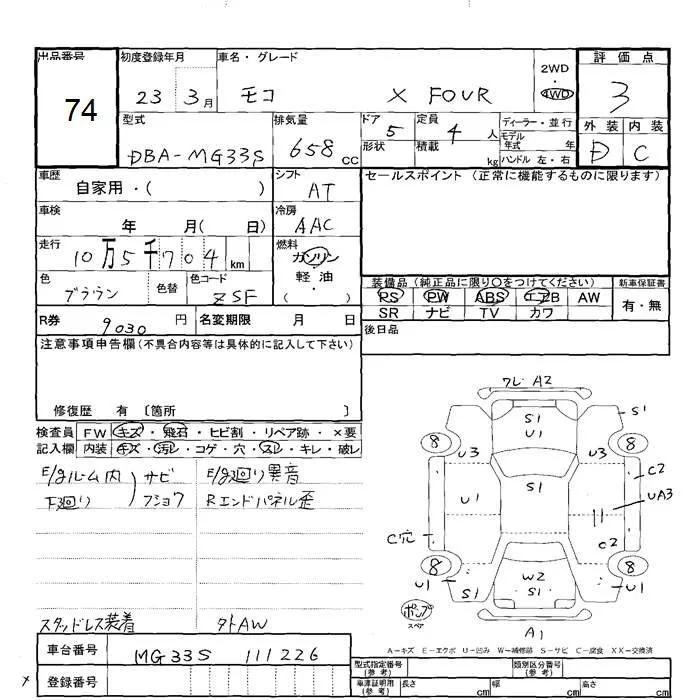 出品番号 初度登録年月 車名・グレード 2WD・4WD 評価点
74 23 3月 モコ X FOUR 3
型式 排気量 ドア 定員 ディーラー・並行 外装 内装
DBA-MG33S 658cc 5 4人 モデル年式 年 D C
形状 積載 kg ハンドル 左・右
車歴 シフト セールスポイント (正常に機能するものに限ります)
自家用・( ) AT
車検 冷房
年 月( 日) AAC
走行 燃料
10万5千704km ガソリン・軽油・( )
色 色替 色コード 装備品 (純正品に限り○をつけてください) 新車保証書
ブラウン ZSF PS PW ABS エアB AW 有・無
SR ナビ TV カワ
R券 9030円 名変期限 月 日 後日品
注意事項申告欄(不具合内容等は具体的に記入して下さい)
修復歴 有 〔箇所 〕
検査員記入欄 FW キズ・飛石・ヒビ割・リペア跡・×要
内装 キズ・汚レ・コゲ・穴・スレ・キレ・破レ
E/gルーム内 サビ E/g廻り異音
F廻り フショク Rエンドパネル歪
スタッドレス装着 タトAW
車台番号 MG33S 111226
× 登録番号
ワレ A2
S1 S1
U1
8 8
U3 U3
C2
S1
U1 UA3
C穴 C2
8 8
W2
U1 S1 S1 U1
ポンプ
スペア
A1
A-キズ E-エクボ U-凹み W-補修跡 S-サビ C-腐食 XX-交換済
型式指定番号(参考) 類別区分番号(参考)
車庫証明用(参考) 長さ cm 幅 cm 高さ cm